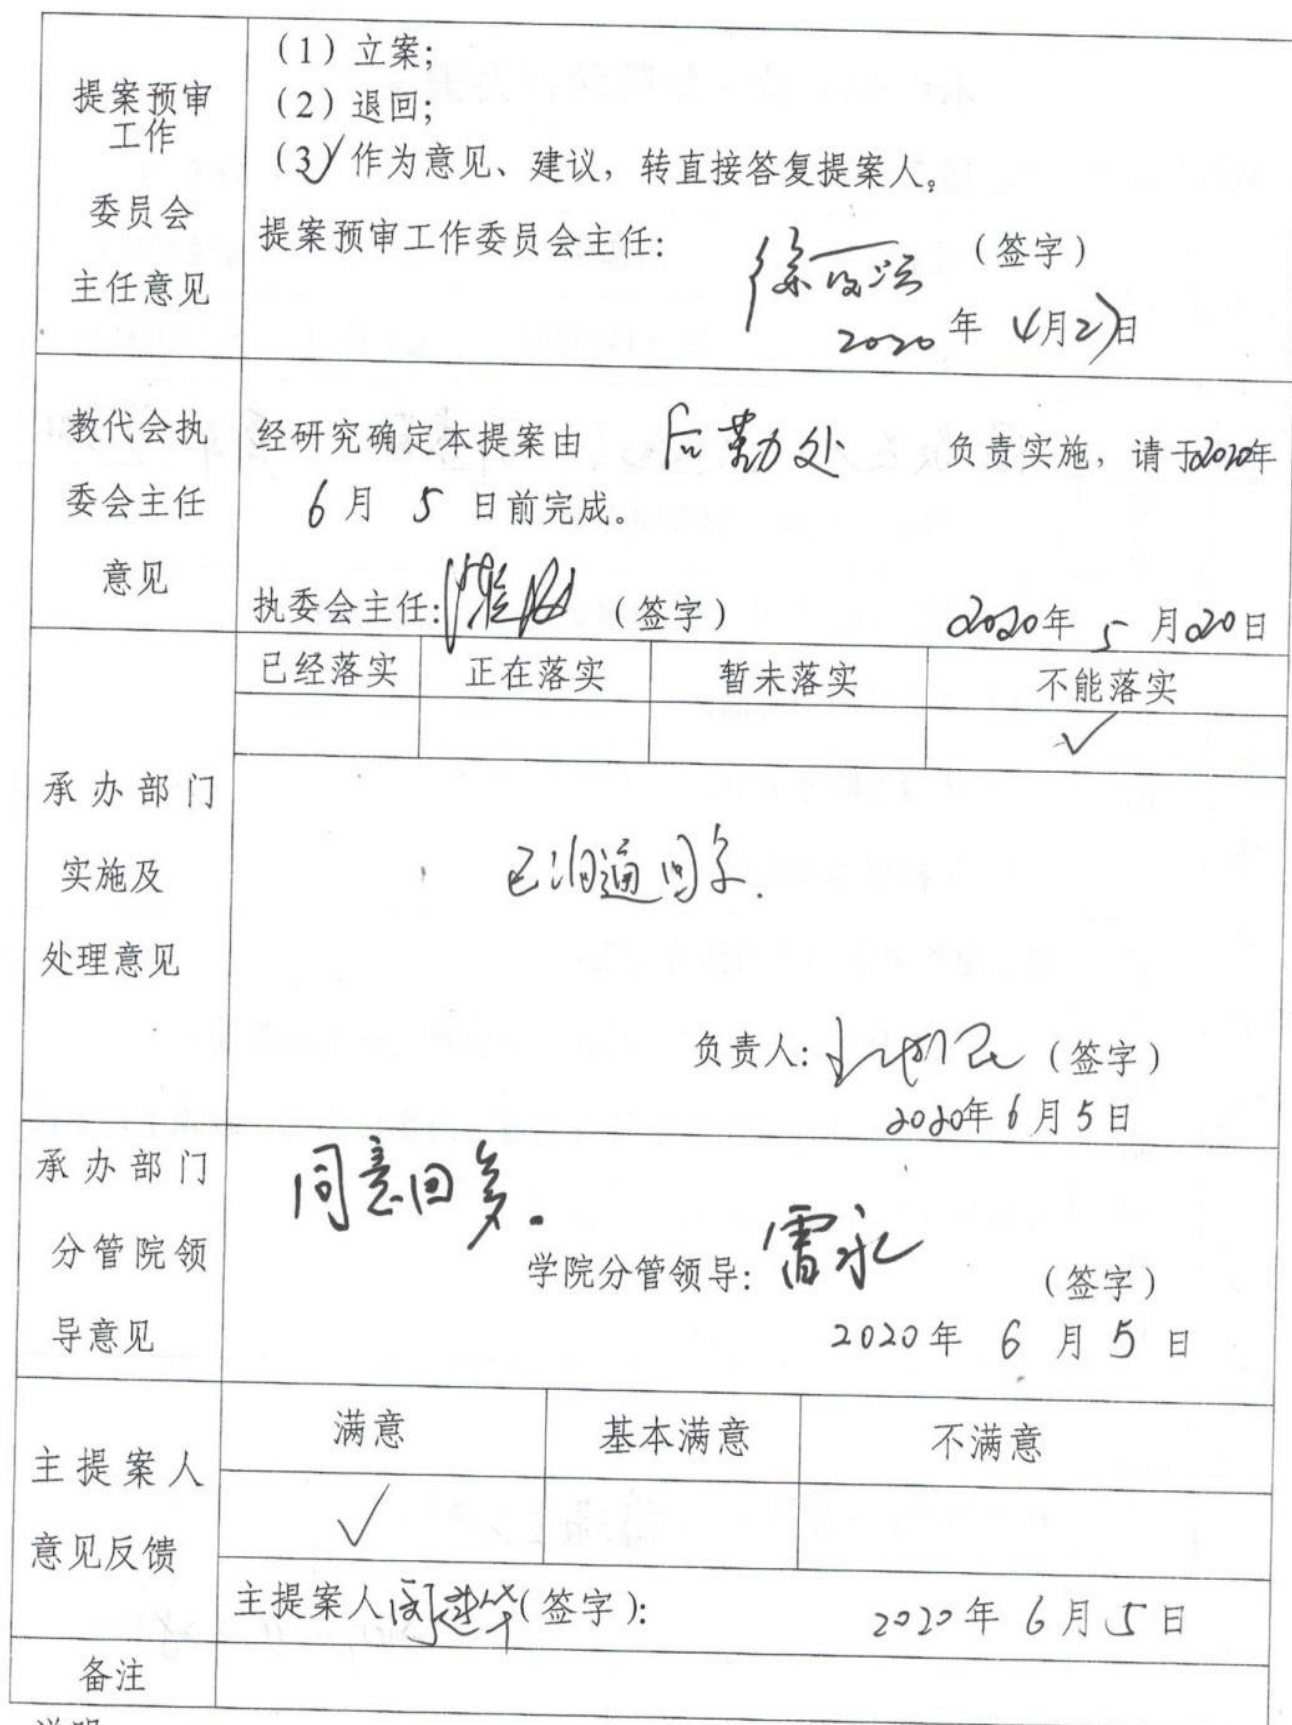 提案预审
工作
委员会
主任意见
(1)立案;
(2)退回;
(3)✓作为意见、建议,转直接答复提案人。
提案预审工作委员会主任:
(签字)
2020年4月27日
教代会执
委会主任
意见
经研究确定本提案由 后勤处 负责实施,请于2020年
6月5日前完成。
执委会主任: (签字) 2020年5月20日
承办部门
实施及
处理意见
已经落实 正在落实 暂未落实 不能落实
✓
已沟通回复.
负责人: (签字)
2020年6月5日
承办部门
分管院领
导意见
同意回复.
学院分管领导:雷永 (签字)
2020年6月5日
主提案人
意见反馈
满意 基本满意 不满意
✓
主提案人 建华(签字): 2020年6月5日
备注
说明